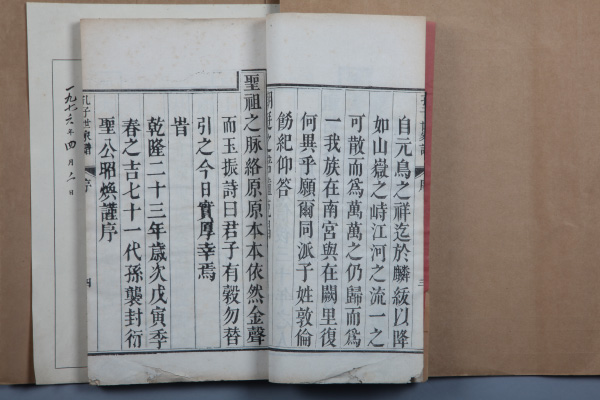 自元鳥之祥迄於麟紱以降
如山嶽之峙江河之流一之
可散而為萬萬之仍歸而為
一我族在南宮與在闕里復
何異乎願爾同派子姓敦倫
飭紀仰答
聖祖之脉絡原原本本依然金聲
而玉振詩曰君子有穀勿替
引之今日實厚幸焉
昔
乾隆二十三年歲次戊寅季
春之吉七十一代孫襲封衍
聖公昭煥謹序
孔子世家譜
序
四
一九七六年四月二日